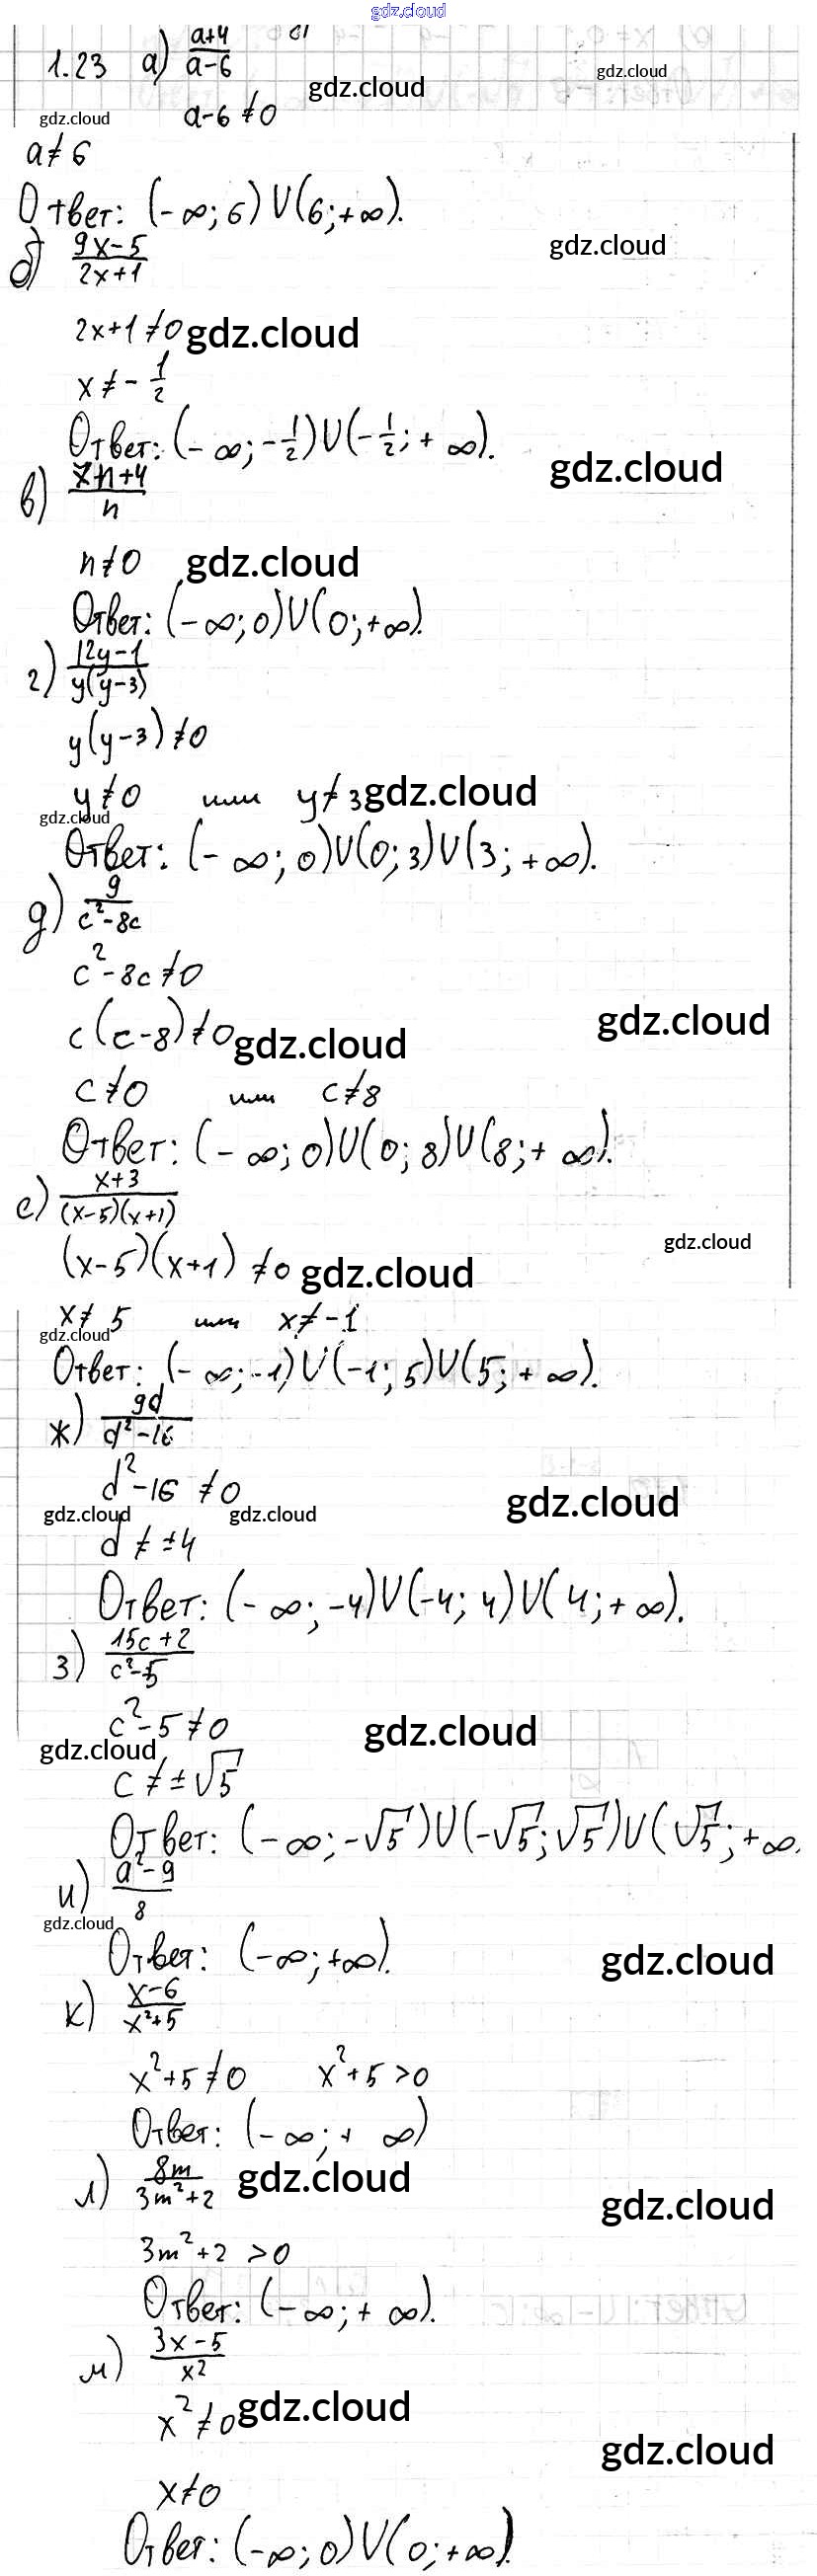 gdz.cloud
1.23 а) (a+4)/(a-6) gdz.cloud gdz.cloud
gdz.cloud a-6 ≠ 0
a ≠ 6
Ответ: (-∞; 6) U (6; +∞).
б) (9x-5)/(2x+1) gdz.cloud
2x+1 ≠ 0 gdz.cloud
x ≠ - 1/2
Ответ: (-∞; -1/2) U (-1/2; +∞).
gdz.cloud
в) (7n+4)/n
n ≠ 0 gdz.cloud
Ответ: (-∞; 0) U (0; +∞).
г) (12y-1)/(y(y-3))
y(y-3) ≠ 0
y ≠ 0 или y ≠ 3 gdz.cloud
gdz.cloud
Ответ: (-∞; 0) U (0; 3) U (3; +∞).
д) 9/(c²-8c)
c²-8c ≠ 0
c(c-8) ≠ 0 gdz.cloud gdz.cloud
c ≠ 0 или c ≠ 8
Ответ: (-∞; 0) U (0; 8) U (8; +∞).
е) (x+3)/((x-5)(x+1))
(x-5)(x+1) ≠ 0 gdz.cloud gdz.cloud
x ≠ 5 или x ≠ -1
gdz.cloud
Ответ: (-∞; -1) U (-1; 5) U (5; +∞).
ж) 9d/(d²-16)
d²-16 ≠ 0 gdz.cloud
gdz.cloud gdz.cloud
d ≠ ±4
Ответ: (-∞; -4) U (-4; 4) U (4; +∞).
з) (15c+2)/(c²-5)
c²-5 ≠ 0 gdz.cloud
gdz.cloud
c ≠ ±√5
Ответ: (-∞; -√5) U (-√5; √5) U (√5; +∞.
и) (a²-9)/8
gdz.cloud
Ответ: (-∞; +∞). gdz.cloud
к) (x-6)/(x²+5)
x²+5 ≠ 0 x²+5 > 0
Ответ: (-∞; +∞)
л) 8m/(3m²+2) gdz.cloud gdz.cloud
3m²+2 > 0
Ответ: (-∞; +∞).
м) (3x-5)/x²
x² ≠ 0 gdz.cloud
gdz.cloud
x ≠ 0
Ответ: (-∞; 0) U (0; +∞).